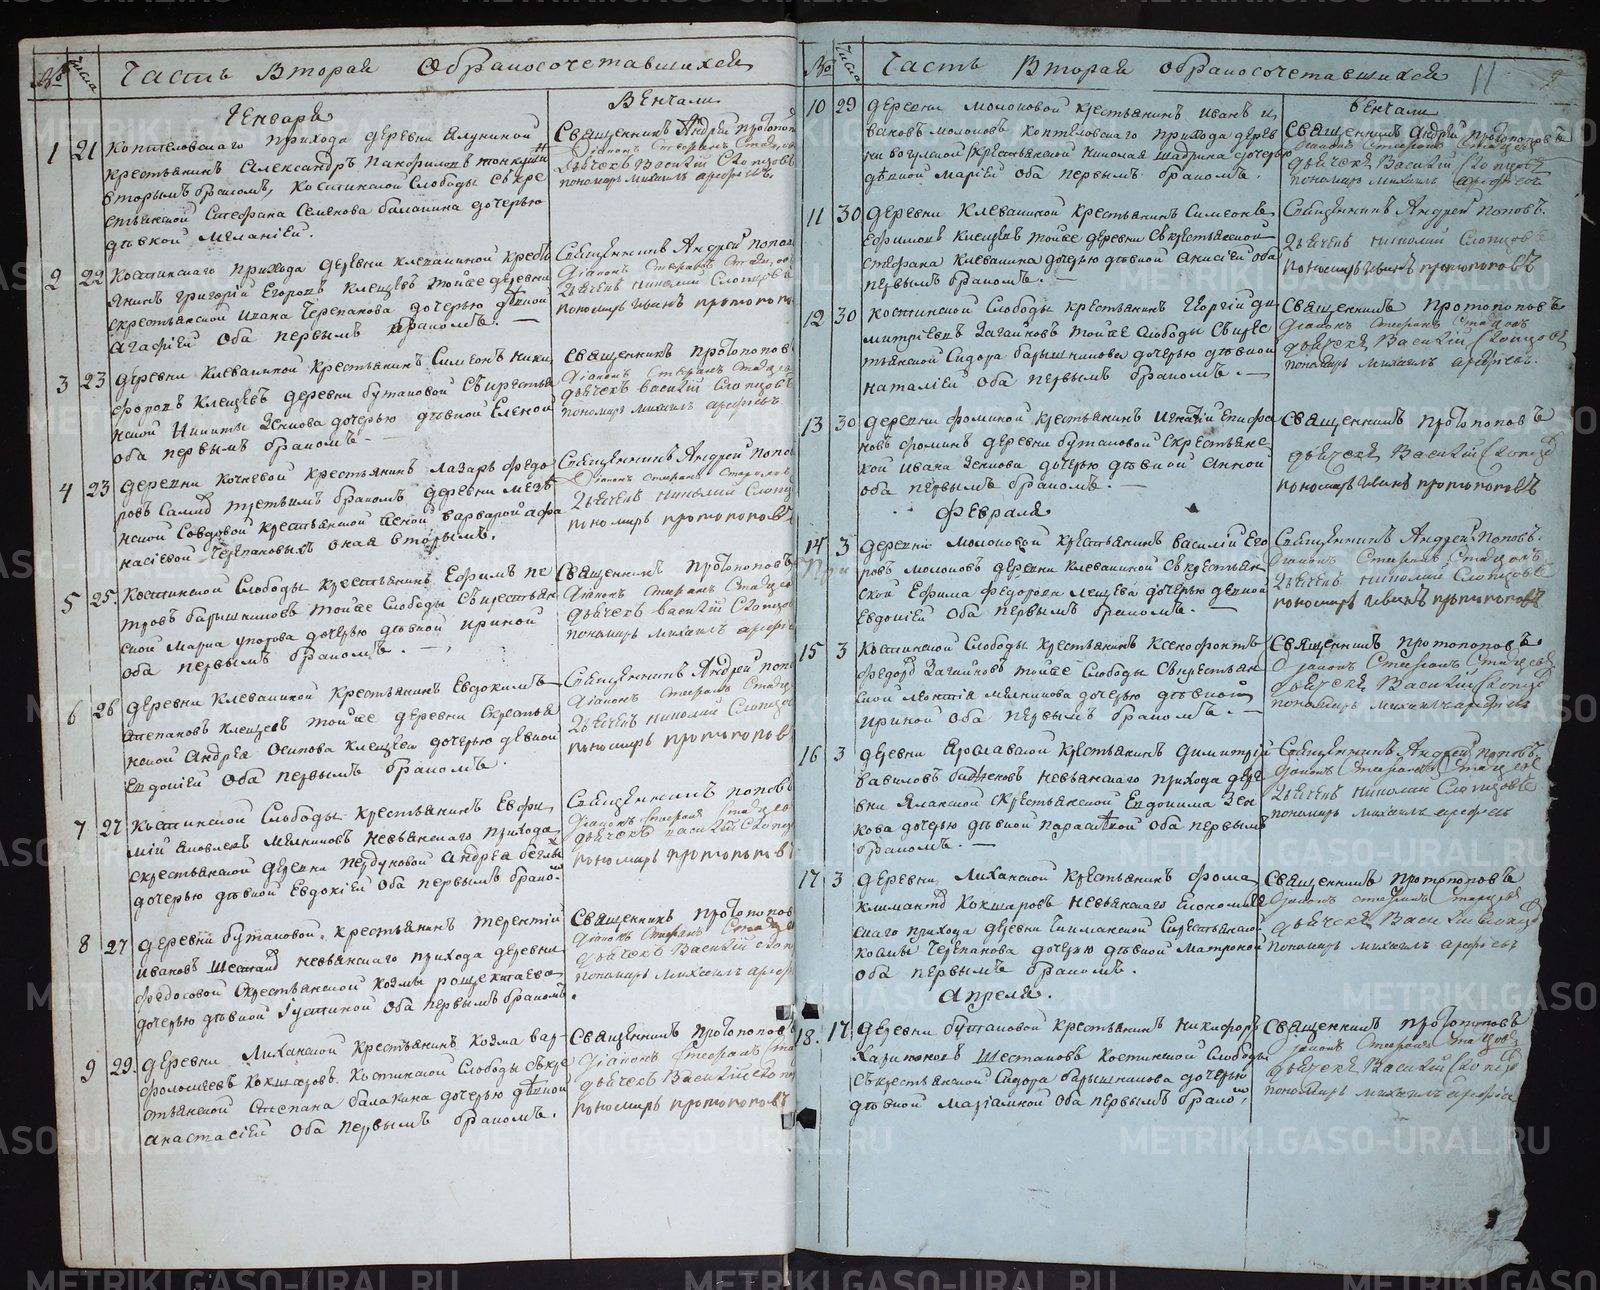 № числа Часть Вторая О бракосочетавшихся
Генваря
Венчали
1 21 Коптеловскаго прихода деревни Ялуниной
крестьянинъ Александръ Панфиловъ
вторымъ бракомъ, Костинской Слободы съ кре
стьянской Стефана Семенова балакина дочерью
девкой Меланіей.
Священникъ Андрей Протопоп
Діаконъ Стефанъ
Дьячекъ Василій Слопцовъ
пономарь Михаилъ арефьевъ.
2 22 Костинскаго прихода деревни клевакиной кресть
янинъ григорій Егоровъ Клещевъ тойже деревни
скрестьянской Ивана Черепанова дочерью девкой
Агафіей оба первымъ бракомъ. —
Священникъ Андрей попов
Діаконъ Стефанъ
Дьячекъ николай Слопцовъ
пономарь Иванъ протопопов
3 23 деревни Клевакиной Крестьянинъ Симеонъ ники
форовъ Клещевъ деревни бутаковой съ крестья
нской Никиты Зенкова дочерью девкой Еленой
оба первымъ бракомъ. —
Священникъ протопопов
Діаконъ Стефанъ
дьячекъ василій Слопцовъ
пономарь михаилъ арефьевъ.
4 23 деревни Кочневой крестьянинъ Лазарь федо
ровъ третьимъ бракомъ деревни
крестьянской женой варварой афа
насіевой Черепановыхъ оная вторымъ.
Священникъ Андрей Попов
Діаконъ Стефанъ
Дьячекъ николай Слопцо
пономарь протопоповъ
5 25. Костинской Слободы крестьянинъ Ефимъ пе
тровъ барышниковъ тойже Слободы съ крестьян
ской Марка упорова дочерью девкой Ириной
оба первымъ бракомъ. —
Священникъ протопоповъ
Діаконъ Стефанъ
дьячекъ василій Слопцов
пономарь михаилъ арефье
6 26 деревни Клевакиной крестьянинъ Евдокимъ
Степановъ Клещевъ тойже деревни скрестья
нской Андрея Осипова Клещева дочерью девкой
Евдокіей оба первымъ бракомъ.
Священникъ Андрей попо
Діаконъ Стефанъ
Дьячекъ николай Слопцов
пономарь протопопов
7 27 Костинской Слободы крестьянинъ Евфи
мій Яковлевъ Мелниковъ невьянскаго прихода
скрестьянской деревни Пердуновой андрея беглы
дочерью девкой Евдокіей оба первымъ брако
Священникъ попов
Діаконъ Стефанъ
дьячекъ василій Слопцо
пономарь протопопов
8 27 деревни бутаковой, крестьянинъ терентій
ивановъ невьянскаго прихода деревни
федосовой Скрестьянской козмы рощектаева
дочерью девкой Іустиной оба первымъ бракомъ.
Священникъ протопопов
Діаконъ Стефанъ
дьячекъ василій слоп
пономарь михаилъ ареф
9 29. деревни Лиханской крестьянинъ козма вар
фоломеевъ кокшаровъ. Костинской слободы съ кре
стьянской Степана балакина дочерью девкой
анастасіей оба первымъ бракомъ.
Священникъ Протопопов
Діаконъ Стефанъ
дьячекъ Василій слоп
пономарь протопоповъ
№ числа Часть Вторая о бракосочетавшихся 11
Венчали
10 29 деревни молоковой крестьянинъ иванъ и
вановъ молоковъ коптеловскаго прихода дерев
ни вогулской скрестьянской николая шадрина дочерью
девкой Маріей оба первымъ бракомъ.
Священникъ Андрей протопоповъ
Діаконъ Стефанъ
дьячекъ Василій Слопцов
пономарь михаилъ арефьевъ
11 30 деревни Клевакиной крестьянинъ Симеонъ
Ефимовъ Клещевъ тойже деревни съ крестьянской
стефана Клевакина дочерью девкой Анисіей оба
первымъ бракомъ. —
Священникъ Андрей поповъ.
Дьячекъ николай Слопцовъ
пономарь Иванъ протопоповъ
12 30 Костинской Слободы крестьянинъ Георгій ди
митріевъ Загайновъ тойже Слободы съ крес
тьянской Сидора барышникова дочерью девкой
наталіей оба первымъ бракомъ. —
Священникъ протопоповъ
Діаконъ Стефанъ
дьячекъ Василій Слопцов
пономарь михаилъ арефьевъ.
13 30 деревни фоминой крестьянинъ Игнатій Епифа
новъ фоминъ деревни бутаковой скрестьянс
кой ивана Зенкова дочерью девкой анной
оба первымъ бракомъ. —
Священникъ протопоповъ
дьячекъ Василій Слопцов
пономарь Иванъ протопоповъ
февраля
14 3 деревни молоковой крестьянинъ василій Его
ровъ молоковъ деревни клевакиной съ крестьян
ской Ефима Федорова клещева дочерью девкой
Евдокіей оба первымъ бракомъ. —
Священникъ Андрей Поповъ.
Діаконъ Стефанъ
Дьячекъ николай Слопцовъ
пономарь Иванъ протопоповъ
15 3 Костинской Слободы крестьянинъ Ксенофонтъ
Федоровъ Загайновъ тойже Слободы съ крестьян
ской леонтія мелникова дочерью девкой
ириной оба первымъ бракомъ. —
Священникъ протопоповъ.
Діаконъ Стефанъ
дьячекъ Василій Слопцов
пономарь михаилъ арефьев
16 3 деревни Ярославской крестьянинъ димитрій
вавиловъ баженовъ невьянскаго прихода дере
вни Яланской скрестьянской Евдокима Зен
кова дочерью девкой Параскевой оба первымъ
бракомъ. —
Священникъ Андрей поповъ.
Діаконъ Стефанъ
Дьячекъ николай Слопцовъ
пономарь михаилъ арефьев
17 3 деревни Лиханской крестьянинъ фома
Кокшаровъ невьянскаго
скаго прихода деревни скрестьянской
козмы Черепанова дочерью девкой Матроной
оба первымъ бракомъ.
Священникъ протопоповъ
Діаконъ Стефанъ
дьячекъ Василій Слопцов
пономарь михаилъ арефьевъ
Апреля.
18. 17. деревни бутаковой крестьянинъ никифоръ
Харитоновъ Шестаковъ Костинской Слободы
съ крестьянской Сидора барышникова дочерью
девкой маріамной оба первымъ брако,
Священникъ протопоповъ
Діаконъ Стефанъ
дьячекъ Василій Слопцов
пономарь михаилъ арефье
METRIKI.GASO-URAL.RU